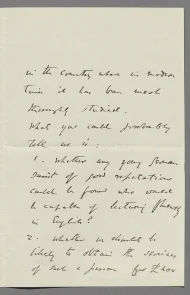 in the country where in modern
times it has been most
thoroughly studied.
What you could probably
tell me is:
1. whether any young German
savant of good reputation
could be found who would
be capable of lecturing fluently
in English?
2. whether we should be
likely to obtain the services
of such a person for